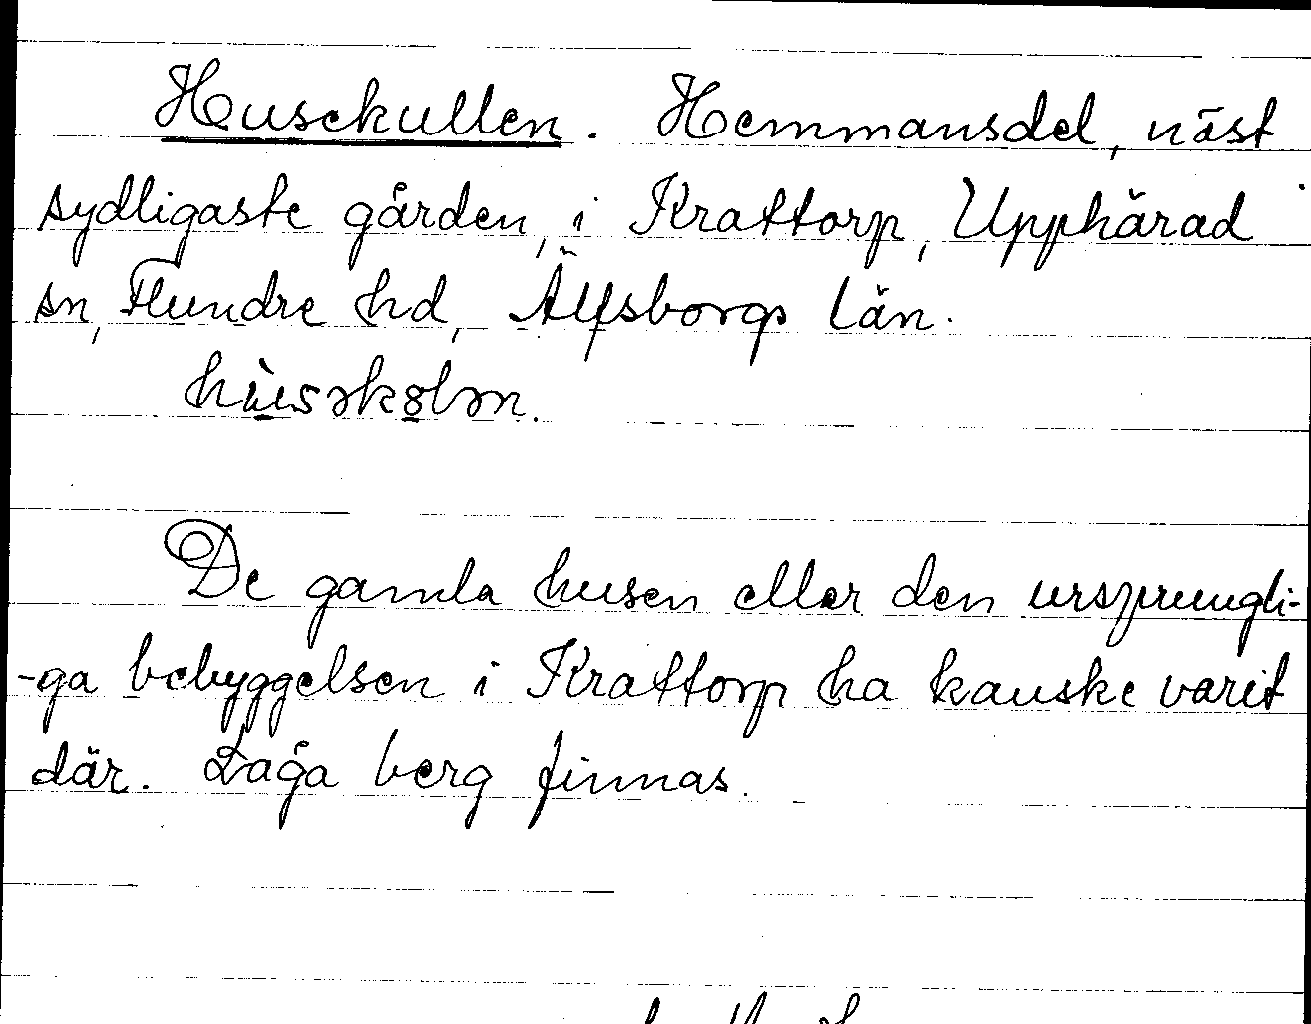 Husekullen. Hemmansdel, näst
sydligaste gården, i Krattorp, Upphärad
sn, Flundre hd, Älfsborgs län.
hùsəkɷlən.
De gamla husen eller den ursprungli-
-ga bebyggelsen i Krattorp ha kanske varit
där. Låga berg finnas.